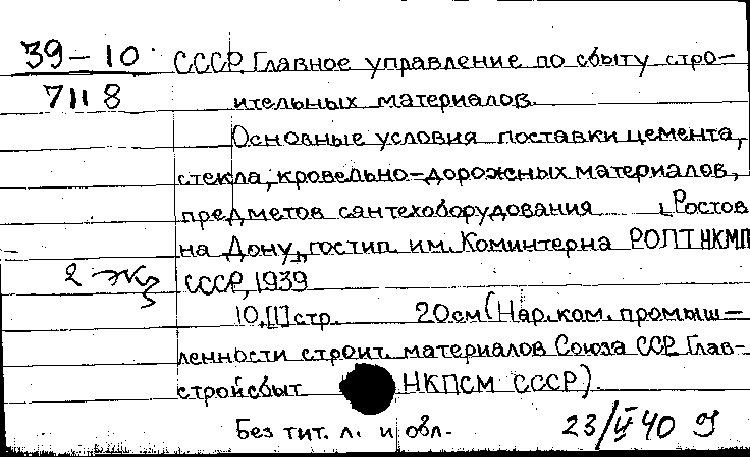 39-10
7118
2 экз
СССР. Главное управление по сбыту стро-
ительных материалов.
Основные условия поставки цемента,
стекла, кровельно-дорожных материалов,
предметов сантехоборудования [Ростов
на Дону], гостип. им. Коминтерна РОПТ НКМП
СССР, 1939
10,[1] стр. 20 см (Нар. ком. промыш-
ленности строит. материалов Союза ССР. Глав-
стройсбыт НКПСМ СССР).
Без тит. л. и обл.
23/V 40